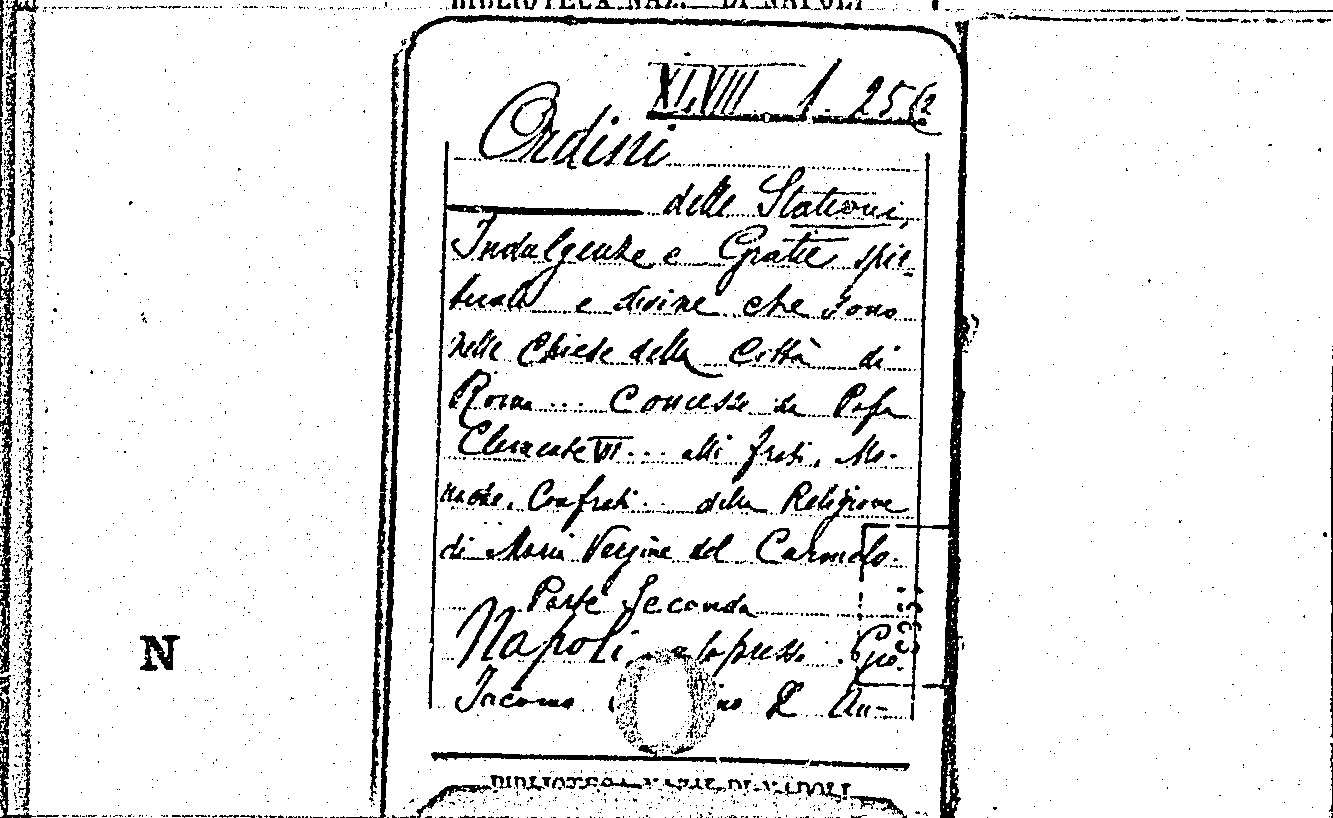 BIBLIOTECA NAZ. DI NAPOLI
XLVIII. 1. 25 (2
Ordini
delle Stationi,
Indulgenze e Gratie spir-
tuali e divine che sono
nelle Chiese della Città di
Roma... Concesse da Papa
Clemente VII... alli frati, Mo-
nache, Confrati... della Religione
di Maria Vergine del Carmelo.
Parte Seconda
Napoli, appresso Gio.
Jacomo & An-
N
BIBLIOTECA NAZ.LE DI NAPOLI